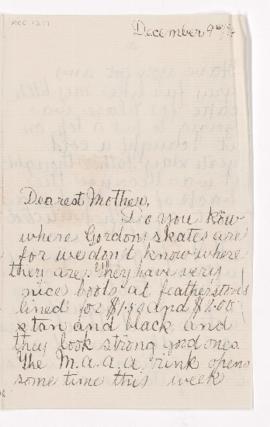 December 9th
Dearest Mother,
Do you know
where Gordons skates are
for we don't know where
they are. They have very
nice boots at featherstones
lined for $1.50 and $2.00
tan and black and
they look strong good ones
The M.a.a.a. rink opens
some time this week